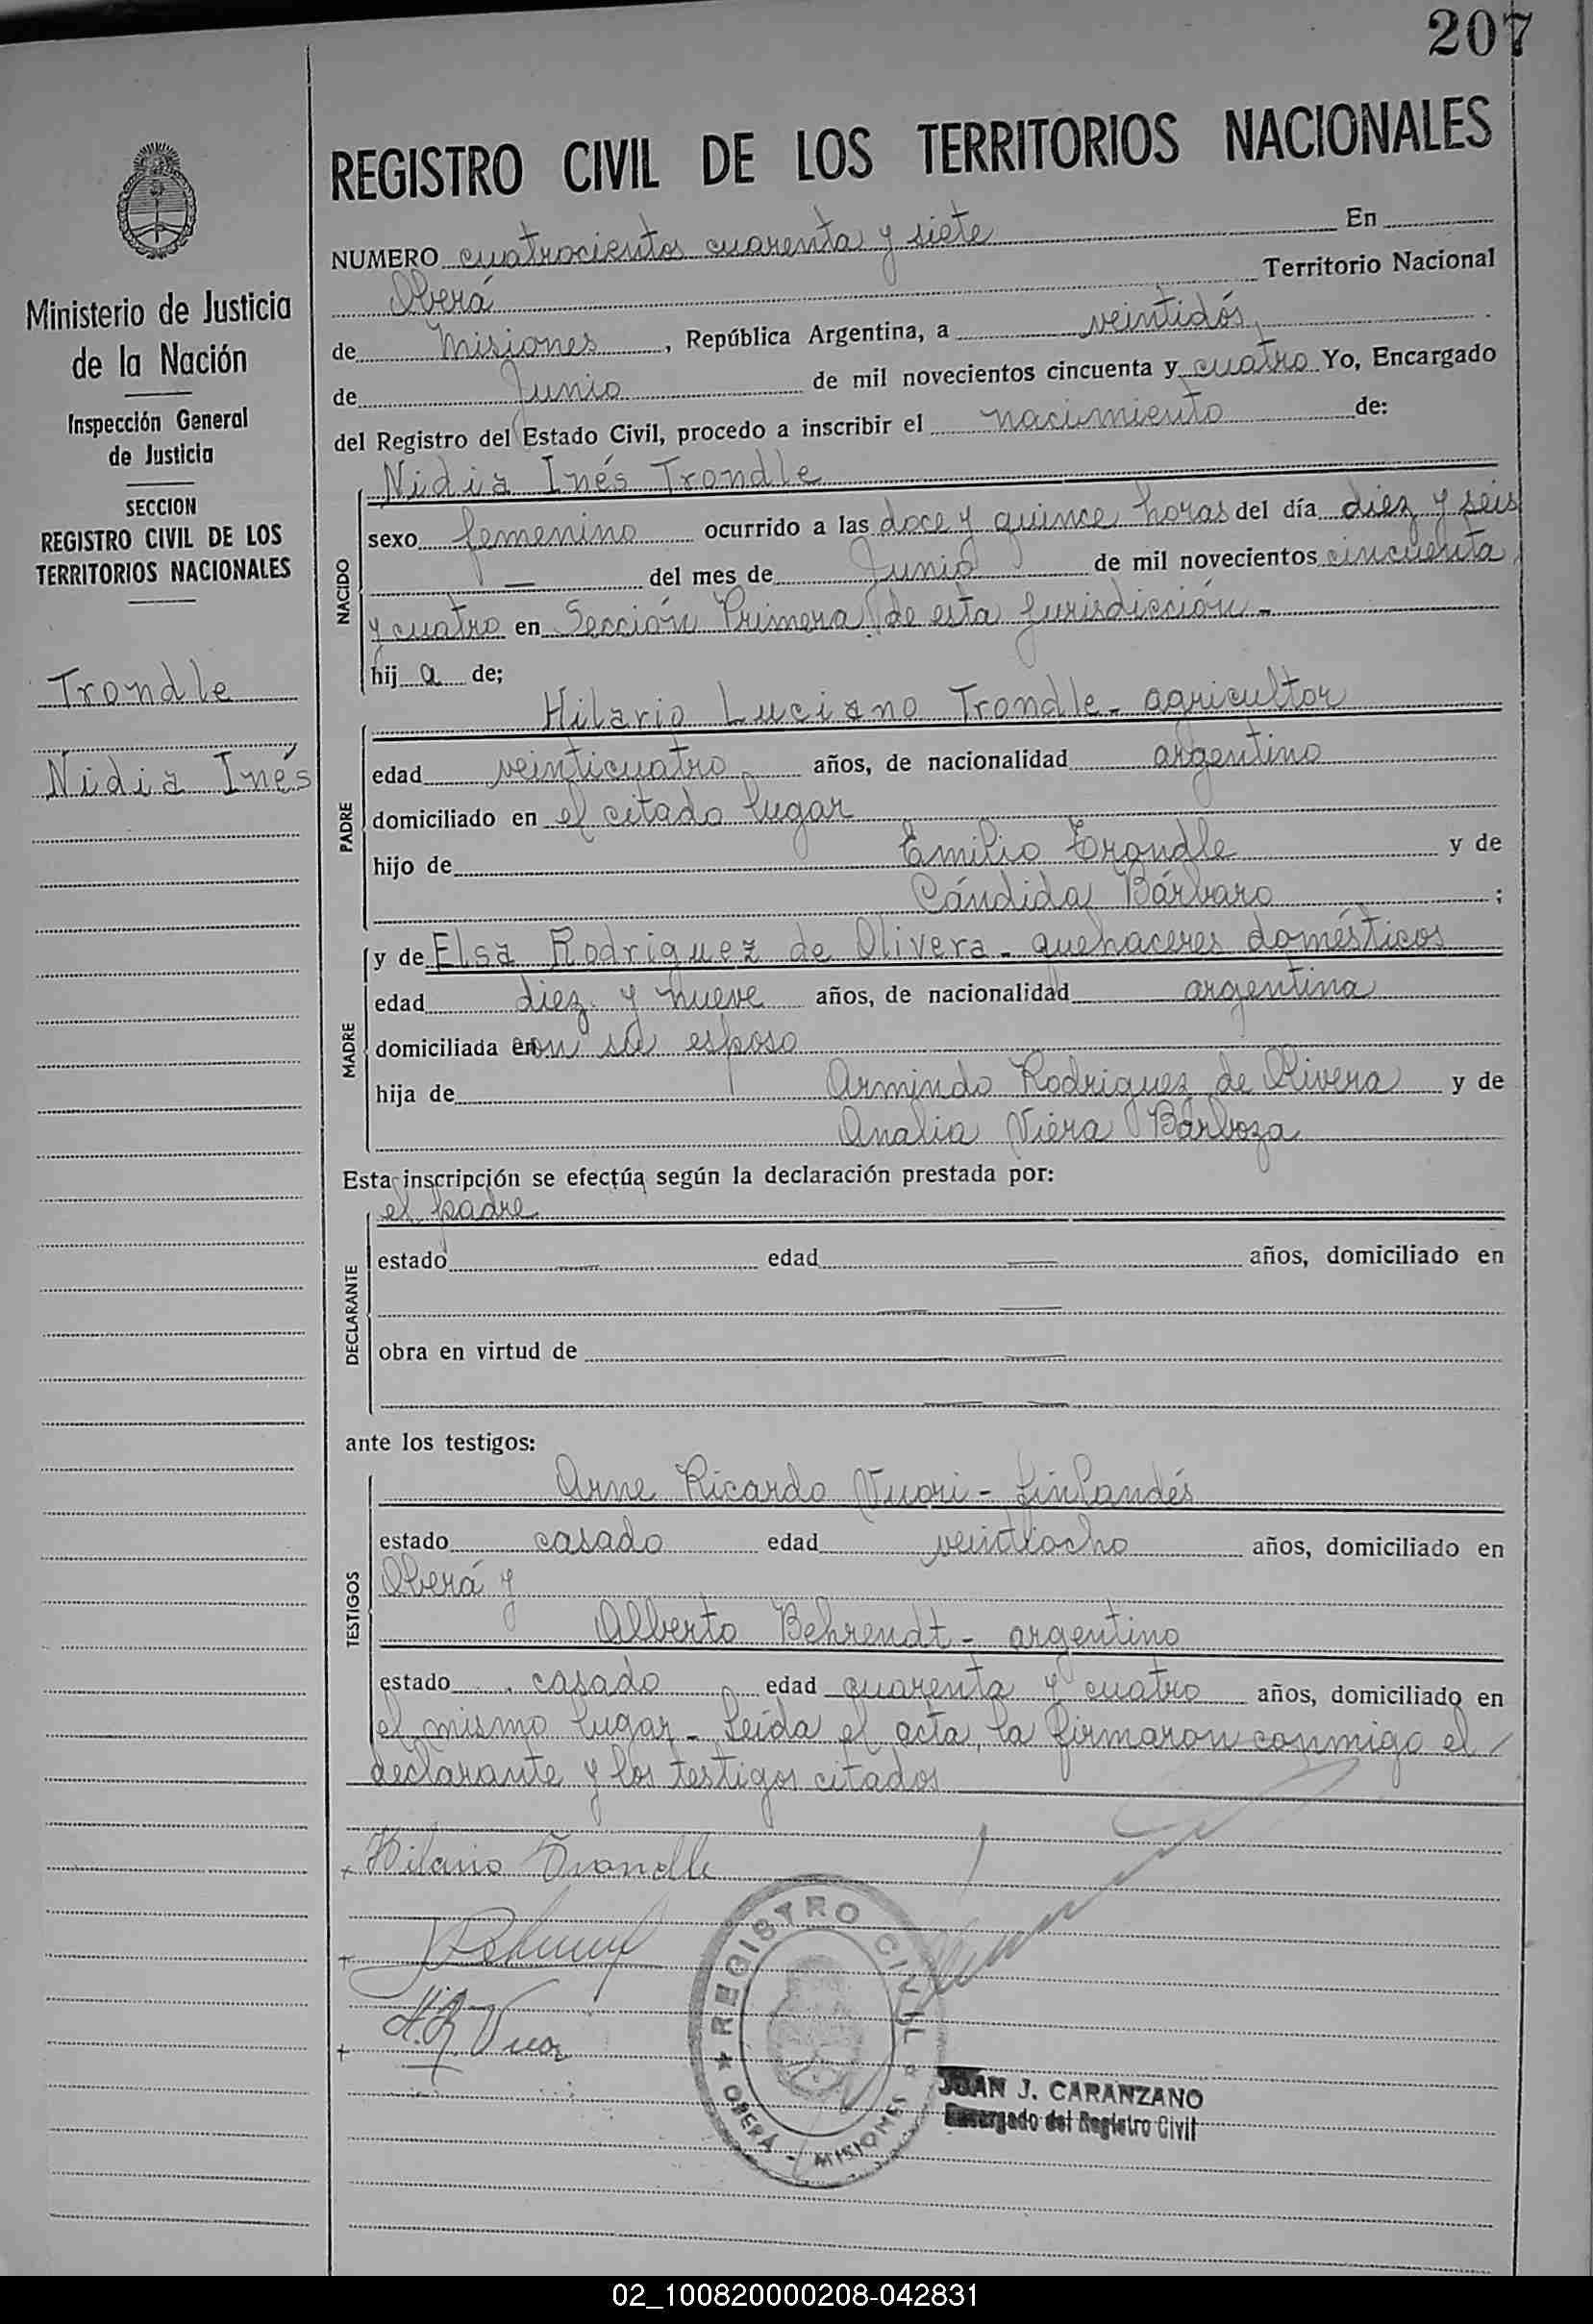 207
REGISTRO CIVIL DE LOS TERRITORIOS NACIONALES
Ministerio de Justicia
de la Nación
Inspección General
de Justicia
SECCION
REGISTRO CIVIL DE LOS
TERRITORIOS NACIONALES
Trondle
Nidia Inés
NUMERO cuatrocientos cuarenta y siete En
Oberá Territorio Nacional
de Misiones, República Argentina, a veintidós
de Junio de mil novecientos cincuenta y cuatro Yo, Encargado
del Registro del Estado Civil, procedo a inscribir el nacimiento de:
NACIDO
Nidia Inés Trondle
sexo femenino ocurrido a las doce y quince horas del día diez y seis
— del mes de Junio de mil novecientos cincuenta
y cuatro en Sección Primera de esta jurisdicción -
hij a de;
PADRE
Hilario Luciano Trondle - agricultor
edad veinticuatro años, de nacionalidad argentino
domiciliado en el citado lugar
hijo de Emilio Trondle y de
Cándida Bárbaro ;
MADRE
y de Elsa Rodriguez de Olivera - quehaceres domésticos
edad diez y nueve años, de nacionalidad argentina
domiciliada con su esposo
hija de Armindo Rodriguez de Olivera y de
Analia Viera Bárboza
Esta inscripción se efectúa según la declaración prestada por:
DECLARANTE
el padre
estado — edad — años, domiciliado en
— —
obra en virtud de — —
— —
ante los testigos:
TESTIGOS
Arne Ricardo Vuori - finlandés
estado casado edad veintiocho años, domiciliado en
Oberá y
Alberto Behrendt - argentino
estado casado edad cuarenta y cuatro años, domiciliado en
el mismo lugar - Leída el acta, la firmaron conmigo el
declarante y los testigos citados
Hilario Trondle
REGISTRO CIVIL
OBERÁ - MISIONES
JUAN J. CARANZANO
Encargado del Registro Civil
02_100820000208-042831